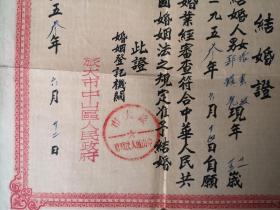 結婚證
結婚人 現年 歲
一九五八年六月 日自願
婚業經審查符合中華人民共
國婚姻法之規定准予結婚
此證
婚姻登記機關
旅大市中山區人民政府
五八年六月十二日